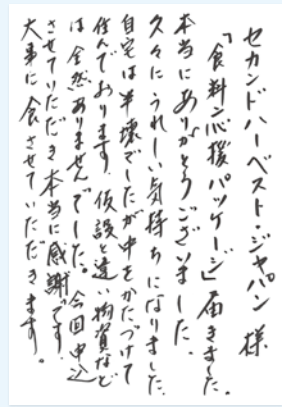 セカンドハーベスト・ジャパン 様
「食料応援パッケージ」届きました。
本当にありがとうございました。
久々にうれしい気持ちになりました。
自宅は半壊でしたが中をかたづけて
住んでおります。仮設と違い物資など
は全然ありませんでした。今回申込
させていただき本当に感謝です。
大事に食させていただきます。